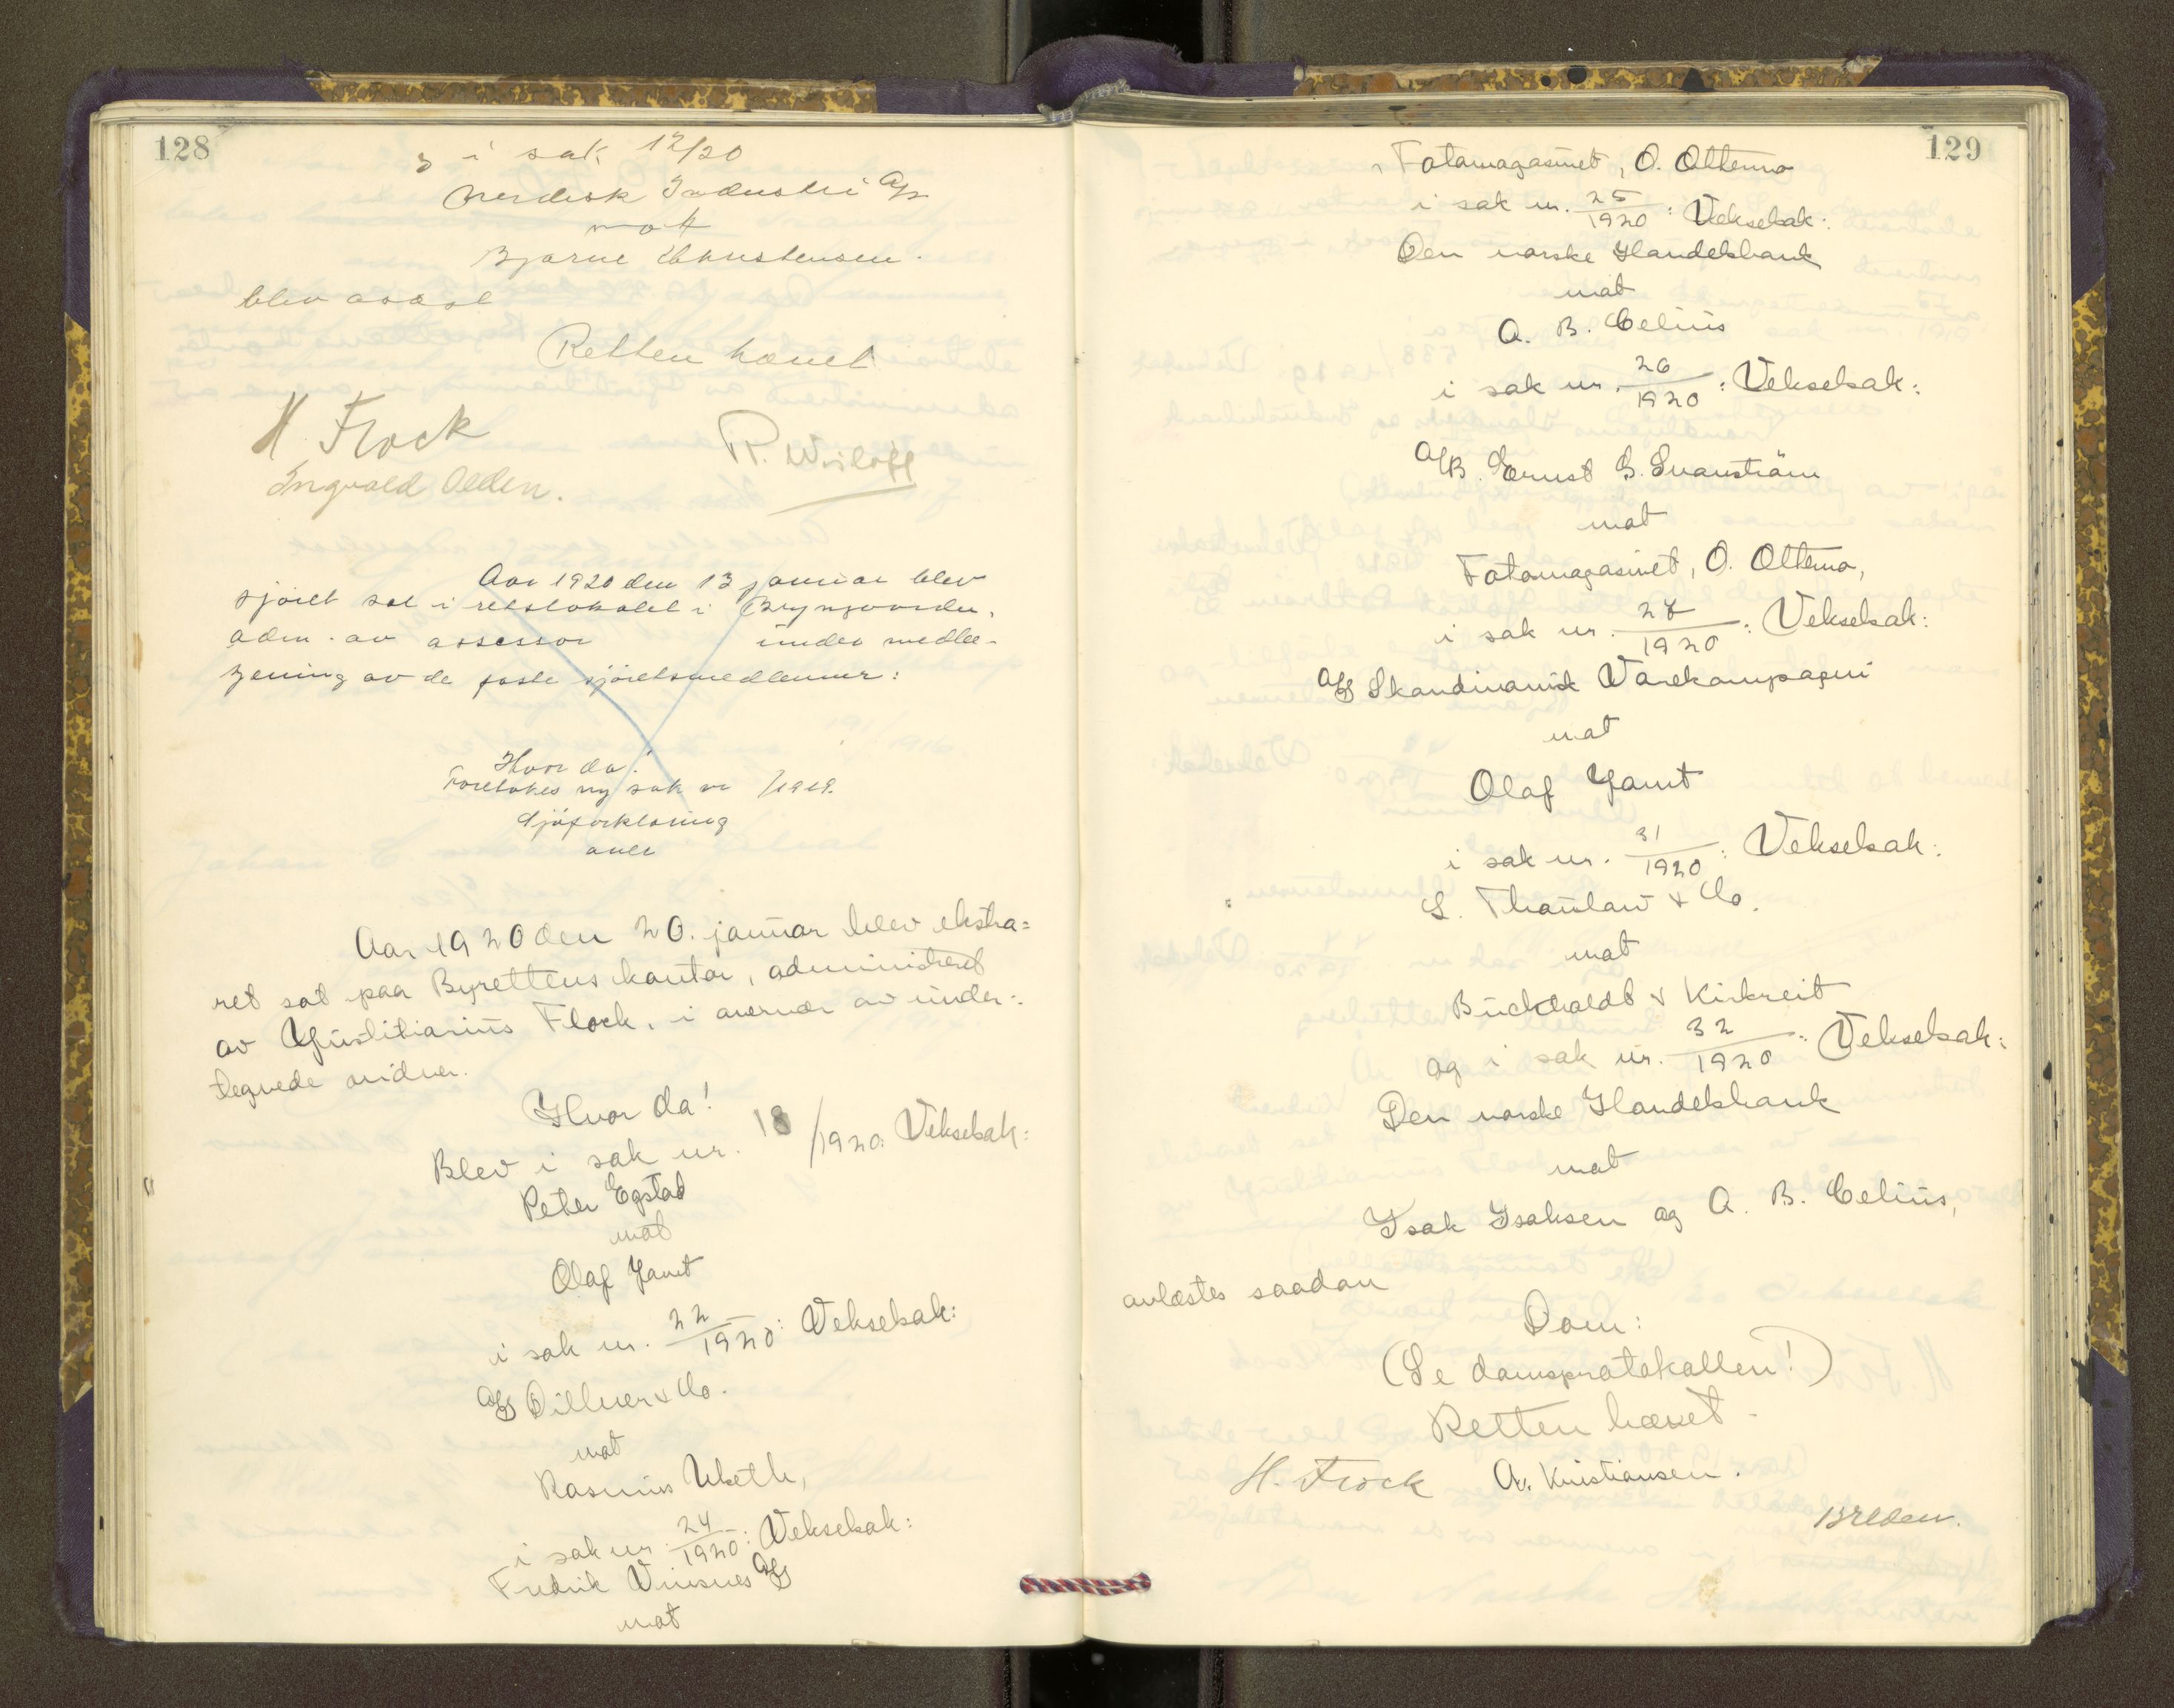 128
i sak 12/20
Nordisk Industri A/S
mot
Bjarne Christensen.
blev avsagt
Retten hævet
H. Flock
R. Wisløff
Ingvald Olden.
Aar 1920 den 13 januar blev
sjöret sat i retslokalet i Byngaarden,
adm. av assessor under medbe-
tjening av de faste sjöretsmedlemmer:
Hvor da!
Foretokes ny sak nr /1919.
Sjöforklaring
over
Aar 1920 den 20. januar blev ekstra=
ret sat paa Byrettens kontor, administreret
av Justitiarius Flock, i overvær av under=
tegnede vidner.
Hvor da!
Blev i sak nr. 18/1920: Vekselsak:
Peter Egstad
mot
Olaf Jamt
i sak nr. 22/1920: Vekselsak:
A/S Dillner & Co.
mot
Rasmus Uketh,
i sak nr. 24/1920: Vekselsak:
Fredrik Vinsnes A/S
mot
129
Fotomagasinet, O. Ottemo
i sak nr. 25/1920: Vekselsak:
Den norske Handelsbank
mot
A. B. Celius
i sak nr. 26/1920: Vekselsak:
A/B. Ernst G. Svanström
mot
Fotomagasinet, O. Ottemo,
i sak nr. 27/1920: Vekselsak:
A/S Skandinavisk Varekompagni
mot
Olaf Jamt
i sak nr. 31/1920: Vekselsak:
S. Thaulow & Co.
mot
Buckholdt & Kirkreit
og i sak nr. 32/1920: Vekselsak:
Den norske Handelsbank
mot
Isak Isaksen og A. B. Celius,
avlæstes saadan
Dom:
(Se domsprotokollen!)
Retten hævet.
H. Flock A. Kristiansen.